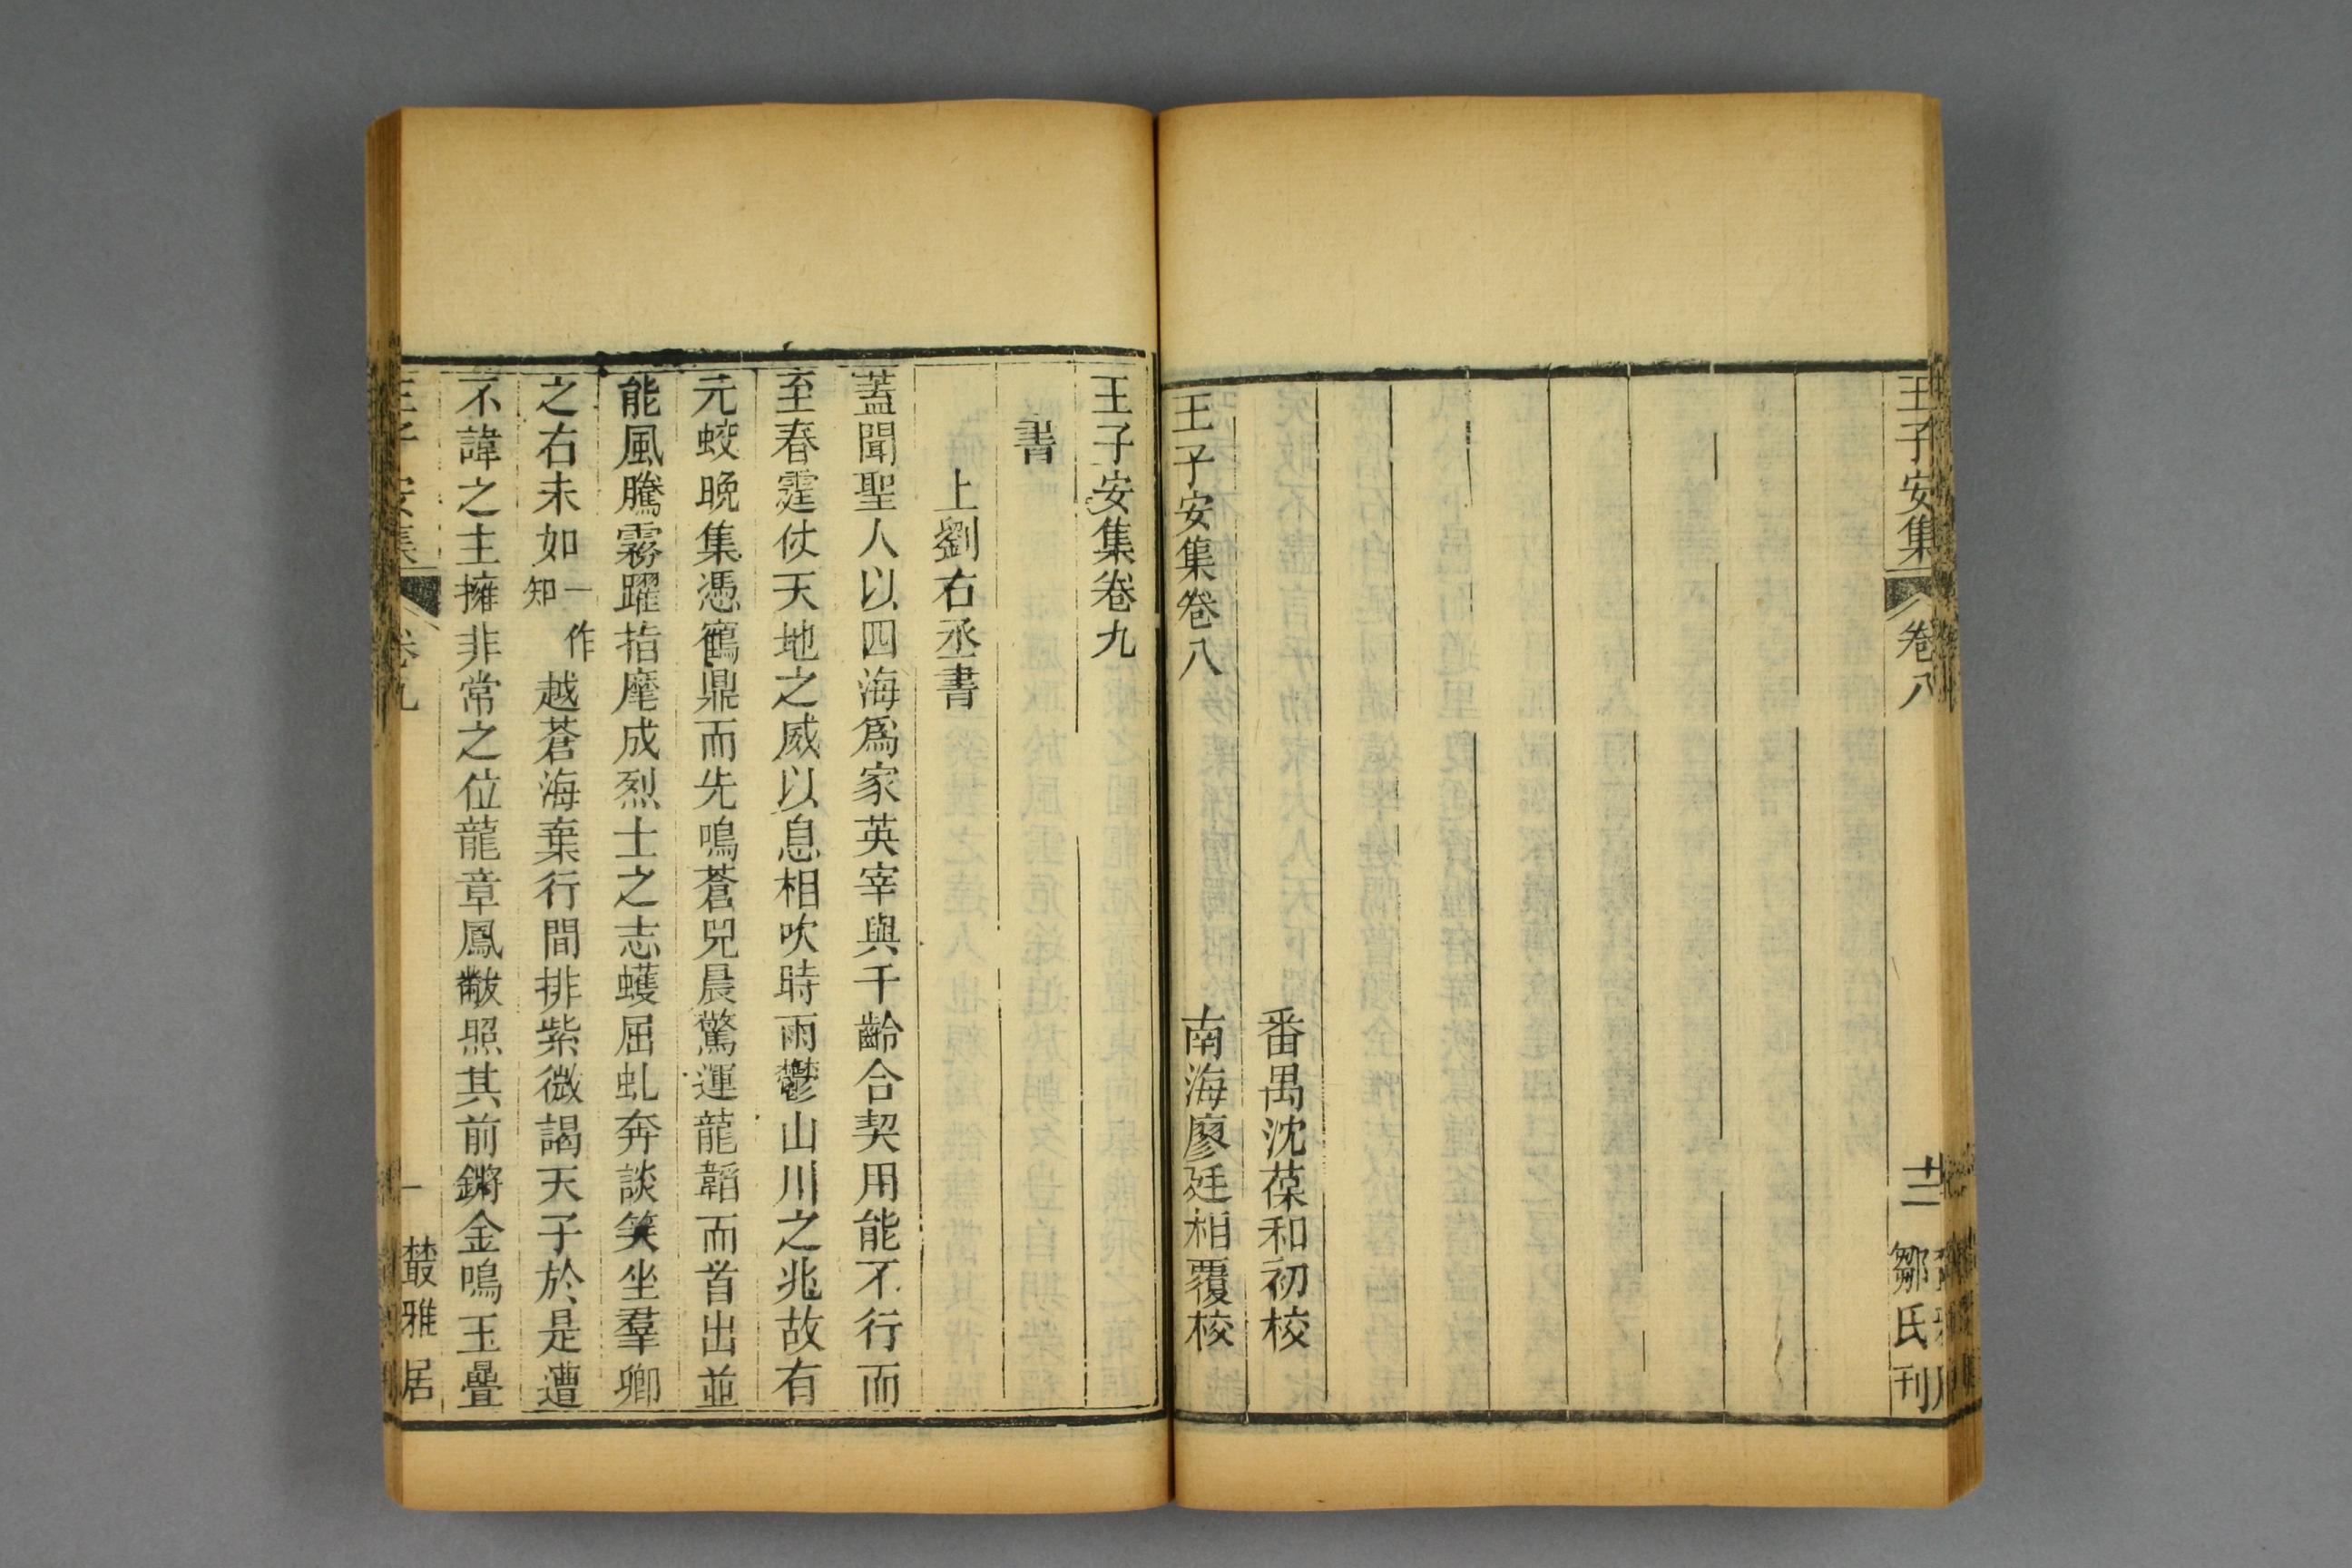 王子安集
卷八
十二
鄒氏刊
番禺沈葆和初校
王子安集卷八
南海廖廷相覆校
王子安集卷九
書
上劉右丞書
蓋聞聖人以四海爲家英宰與千齡合契用能不行而
至春霆仗天地之威以息相吹時雨鬱山川之兆故有
元蛟晚集憑鶴鼎而先鳴蒼兕晨驚運龍韜而首出並
能風騰霧躍指麾成烈士之志蠖屈虬奔談笑坐羣卿
之右未如一作知越蒼海棄行間排紫微謁天子於是遭
不諱之主擁非常之位龍章鳳黻照其前鏘金鳴玉疊
卷九
一
叢雅居